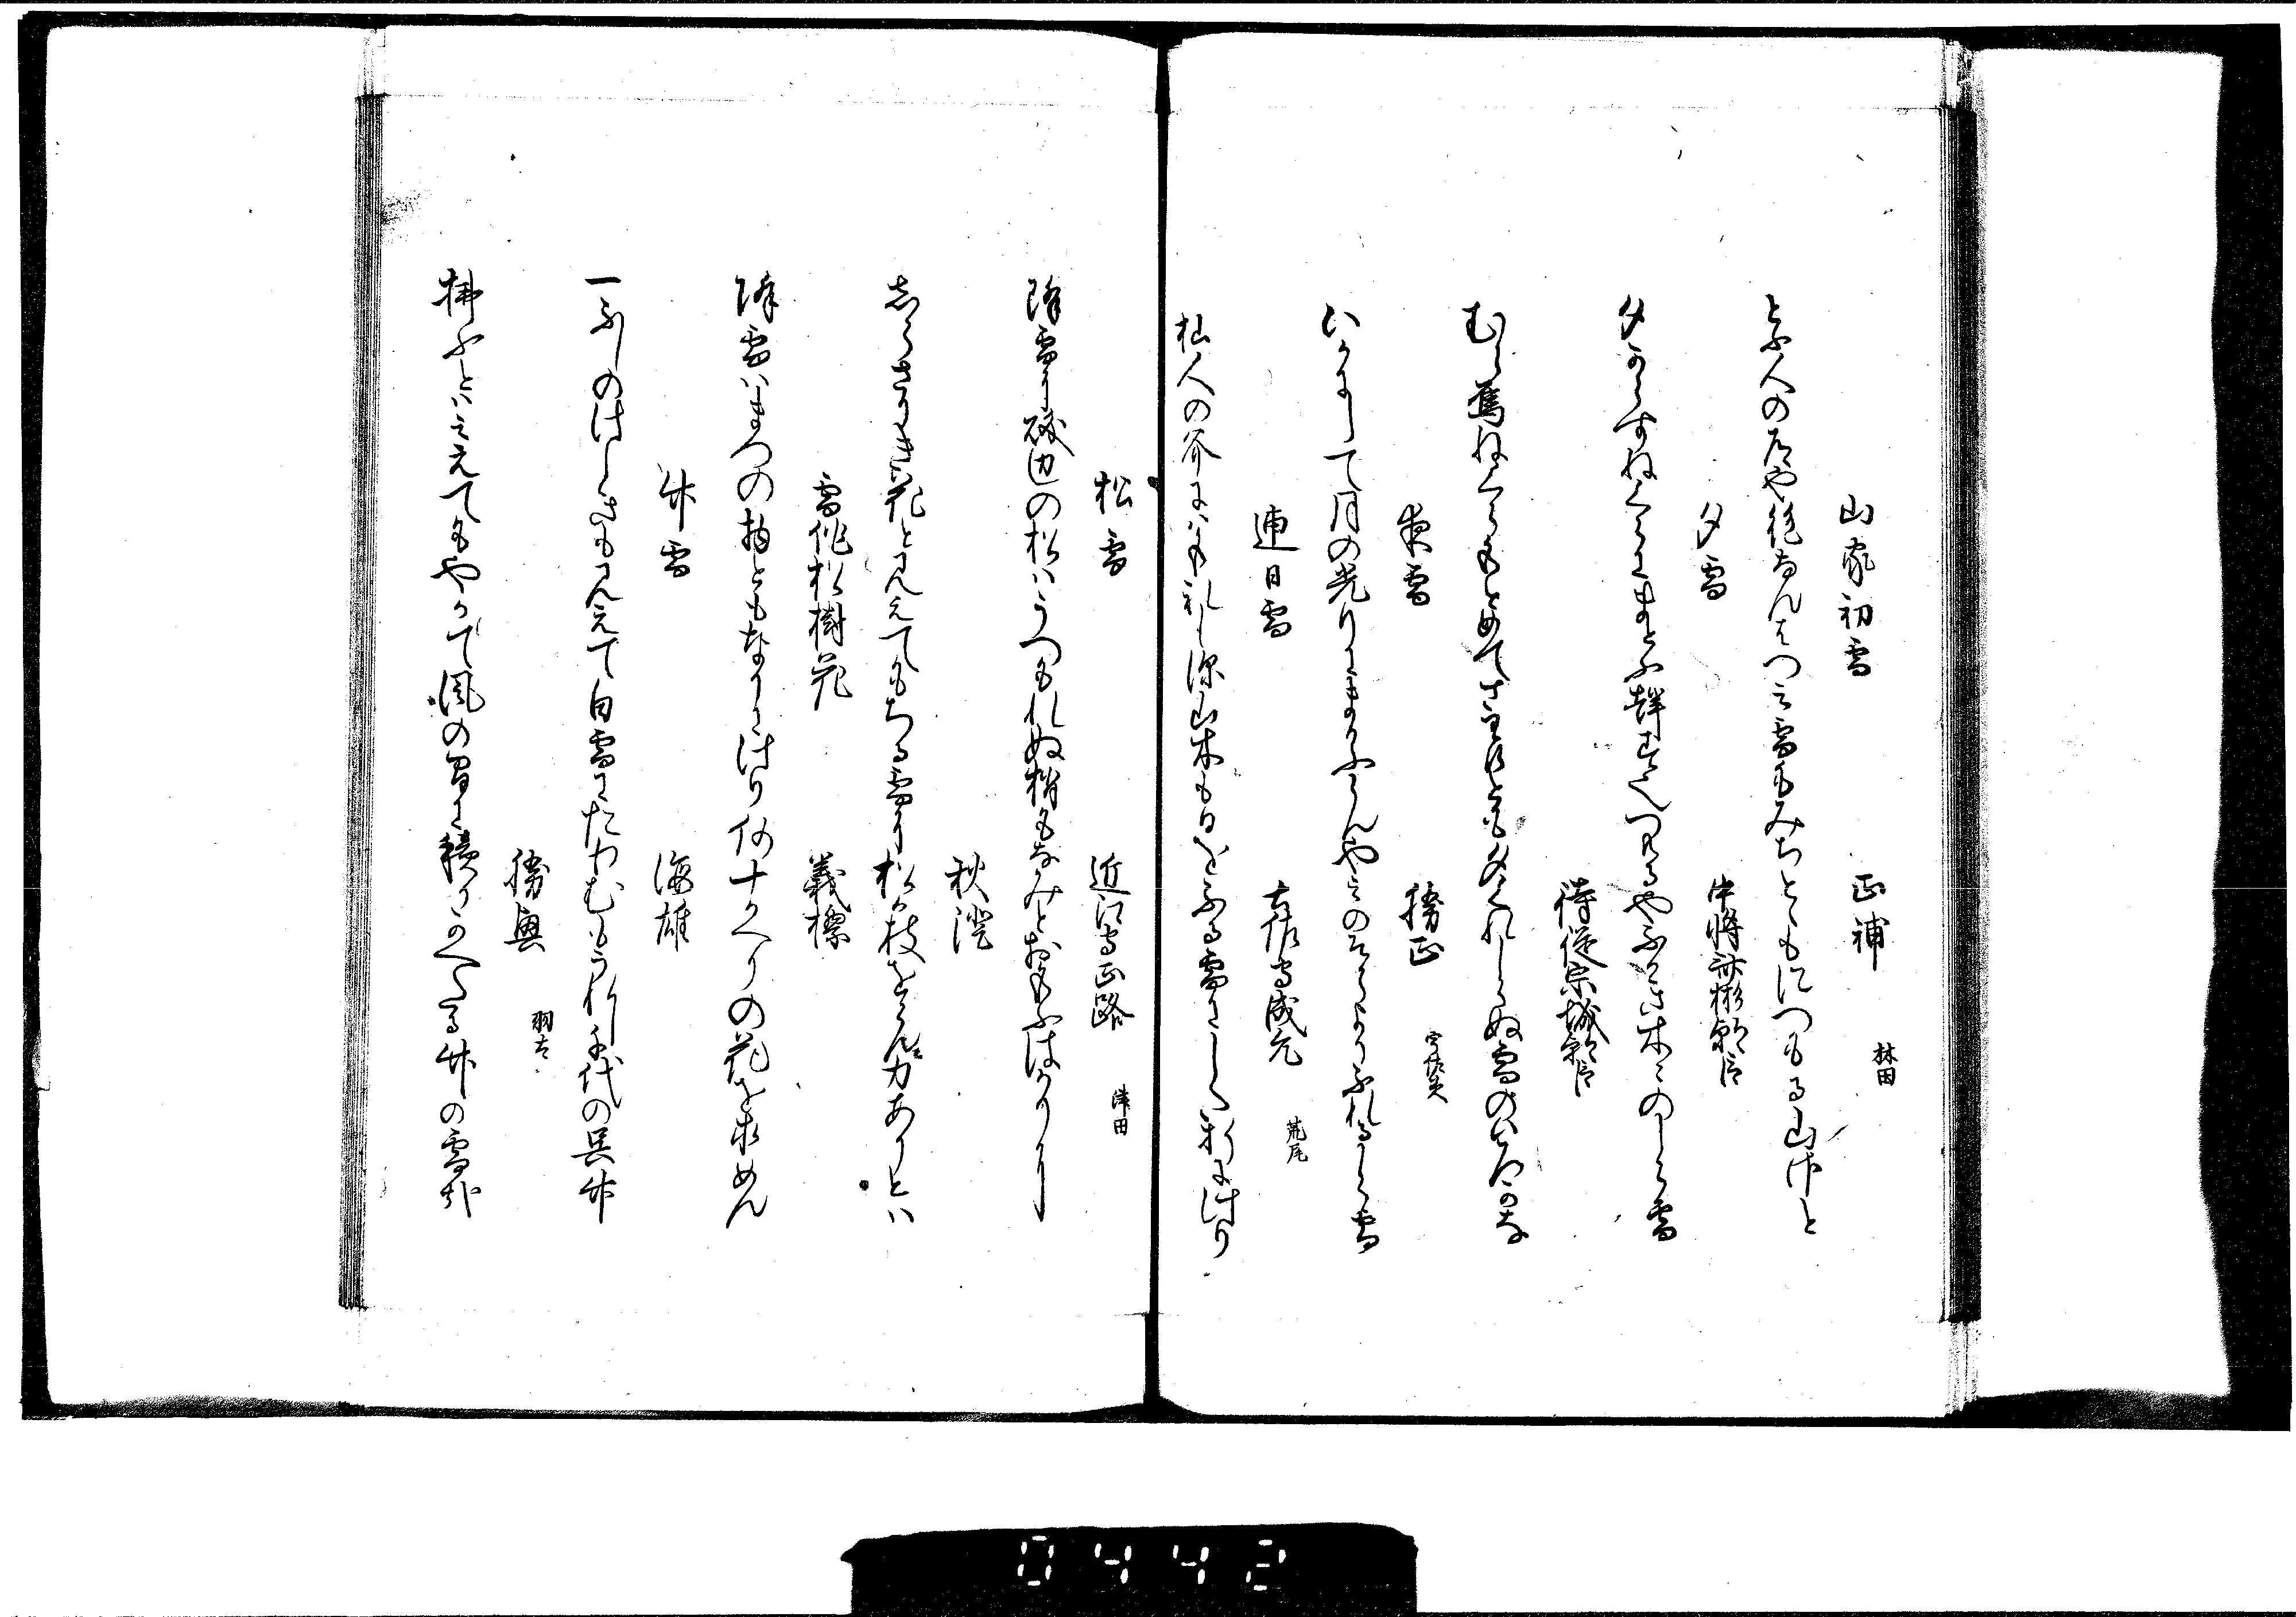 山家初雪　正補　林田
とふ人の道や絶なんはつみ雪をみちとゝもにつもる山けと
夕雪　中将斉彬朝臣
夕からすねくらにまとふ声すへつもるや木ゝのしら雪
侍従宗城朝臣
むら鳥ねくらもとめてさわけとも夕くれしらぬ雪のいろかな
夜雪　勝正　宇佐美
いかにして月の光りにまかふらんやみのそらよりふれるしら雪
連日雪　土佐守成允　荒尾
杣人の斧にはもれし深山木も日をふる雪にした折にけり
松雪　近江守正路　津田
降雪に磯辺の松はうつもれぬ梢もなみとおもふはかりに
秋澄
しらさりき花と見えてもちる雪に松か枝をらん力ありとは
雪作松樹花　義標
降雪はまつの物ともなりにけり何十かへりの花を求めん
竹雪　海雄
一ふしのけしきも見えて白雪にたわむもうれし千代の呉竹
勝興　羽太
払ふとはみえてもやかて風の間に積りかへたる竹の雪哉
0442